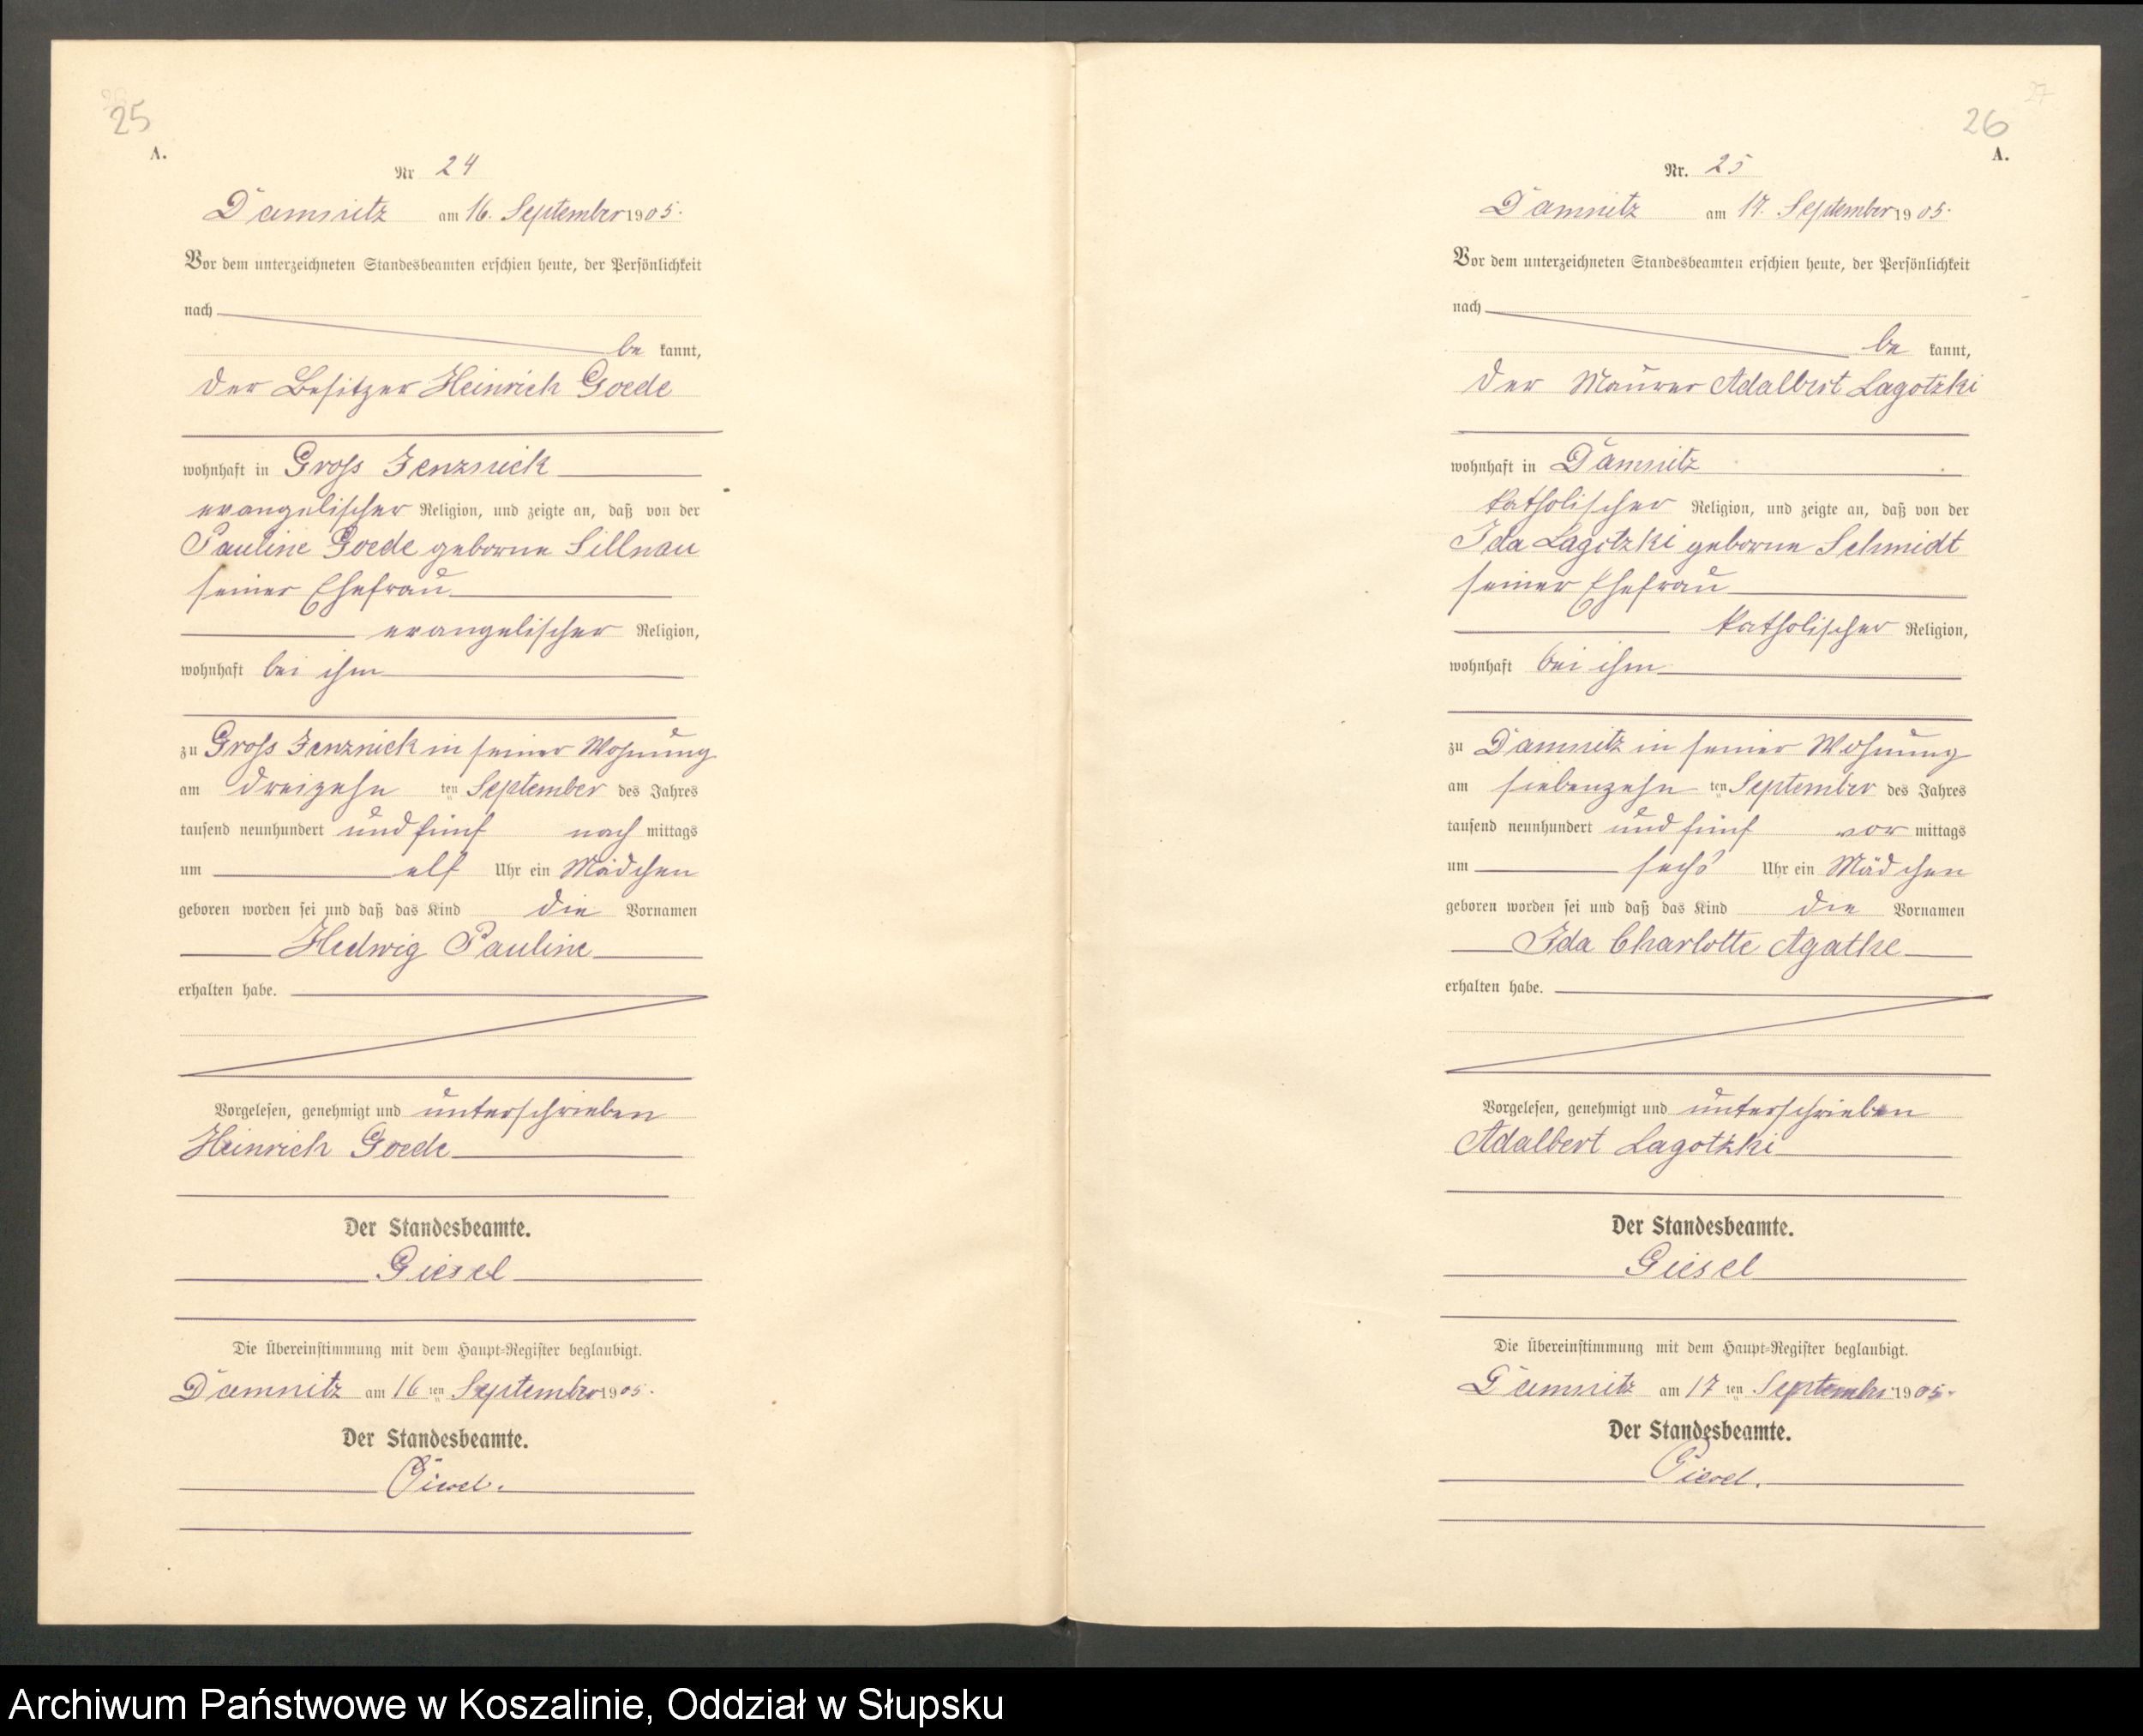 25
A.
Nr 24
Damnitz am 16. September 1905.
Vor dem unterzeichneten Standesbeamten erschien heute, der Persönlichkeit
nach
be kannt,
der Besitzer Heinrich Goede
wohnhaft in Gross Jenznick
evangelischer Religion, und zeigte an, daß von der
Pauline Goede geborne Sillnau
seiner Ehefrau
evangelischer Religion,
wohnhaft bei ihm
zu Gross Jenznick in seiner Wohnung
am dreizehn ten September des Jahres
tausend neunhundert und fünf nach mittags
um elf Uhr ein Mädchen
geboren worden sei und daß das Kind die Vornamen
Hedwig Pauline
erhalten habe.
Vorgelesen, genehmigt und unterschrieben
Heinrich Goede
Der Standesbeamte.
Giesel
Die Übereinstimmung mit dem Haupt-Register beglaubigt.
Damnitz am 16 ten September 1905.
Der Standesbeamte.
Giesel.
27
26
A.
Nr. 25
Damnitz am 17. September 1905.
Vor dem unterzeichneten Standesbeamten erschien heute, der Persönlichkeit
nach
be kannt,
der Maurer Adalbert Lagotzki
wohnhaft in Damnitz
katholischer Religion, und zeigte an, daß von der
Ida Lagotzki geborne Schmidt
seiner Ehefrau
katholischer Religion,
wohnhaft bei ihm
zu Damnitz in seiner Wohnung
am siebenzehn ten September des Jahres
tausend neunhundert und fünf vor mittags
um sechs Uhr ein Mädchen
geboren worden sei und daß das Kind die Vornamen
Ida Charlotte Agathe
erhalten habe.
Vorgelesen, genehmigt und unterschrieben
Adalbert Lagotzki
Der Standesbeamte.
Giesel
Die Übereinstimmung mit dem Haupt-Register beglaubigt.
Damnitz am 17 ten September 1905.
Der Standesbeamte.
Giesel.
Archiwum Państwowe w Koszalinie, Oddział w Słupsku